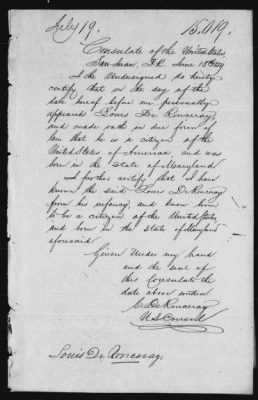 July 19. 15.619.
Consulate of the United States,
San Juan, P.R. June 18th
I the Undersigned do hereby
certify that on the day of the
date hereof before me personally
appeared Louis De Ronceray,
and made oath in due form of
law that he is a citizen of the
United States of America, and was
born in the State of Maryland.
I further certify that I have
known the said Louis DeRonceray
from his infancy, and know him
to be a citizen of the United States
and born in the State of Maryland
aforesaid.
Given Under my hand
and the seal of
this Consulate the
date above written
C. DeRonceray
U.S. Consul
Louis De Ronceray.